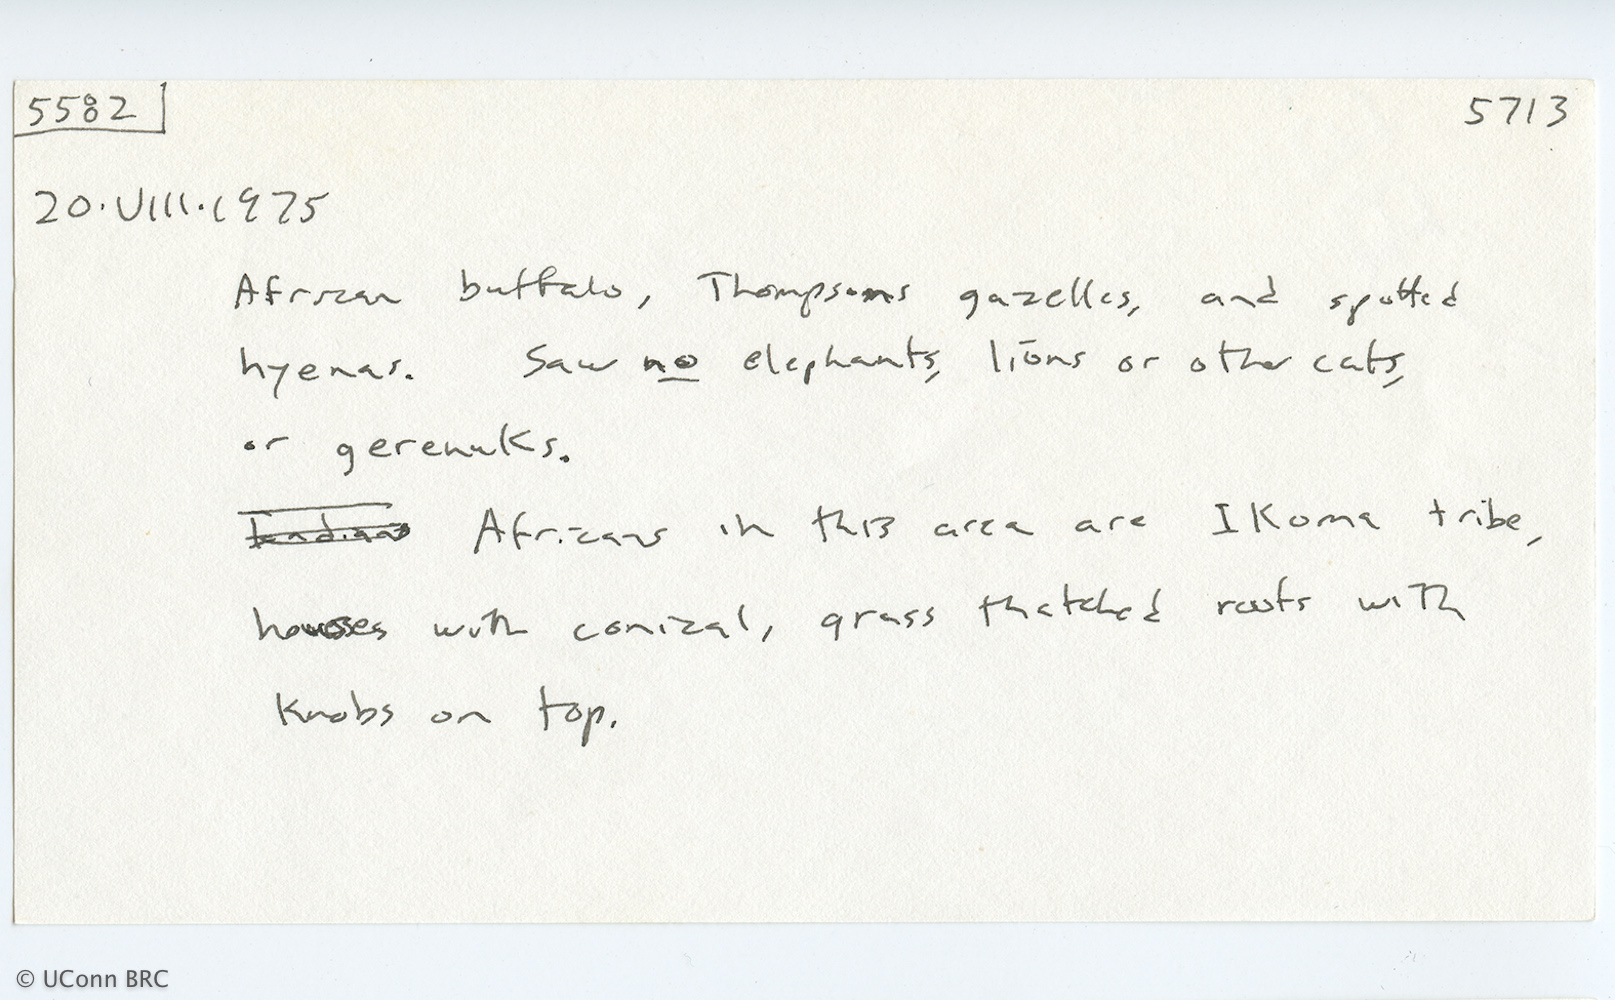 5582 5713
20.VIII.1975
African buffalo, Thompsons gazelles, and spotted
hyenas. Saw no elephants, lions or other cats,
or gerenuks.
Africans in this area are IKoma tribe,
houses with conical, grass thatched roofs with
knobs on top.
© UConn BRC